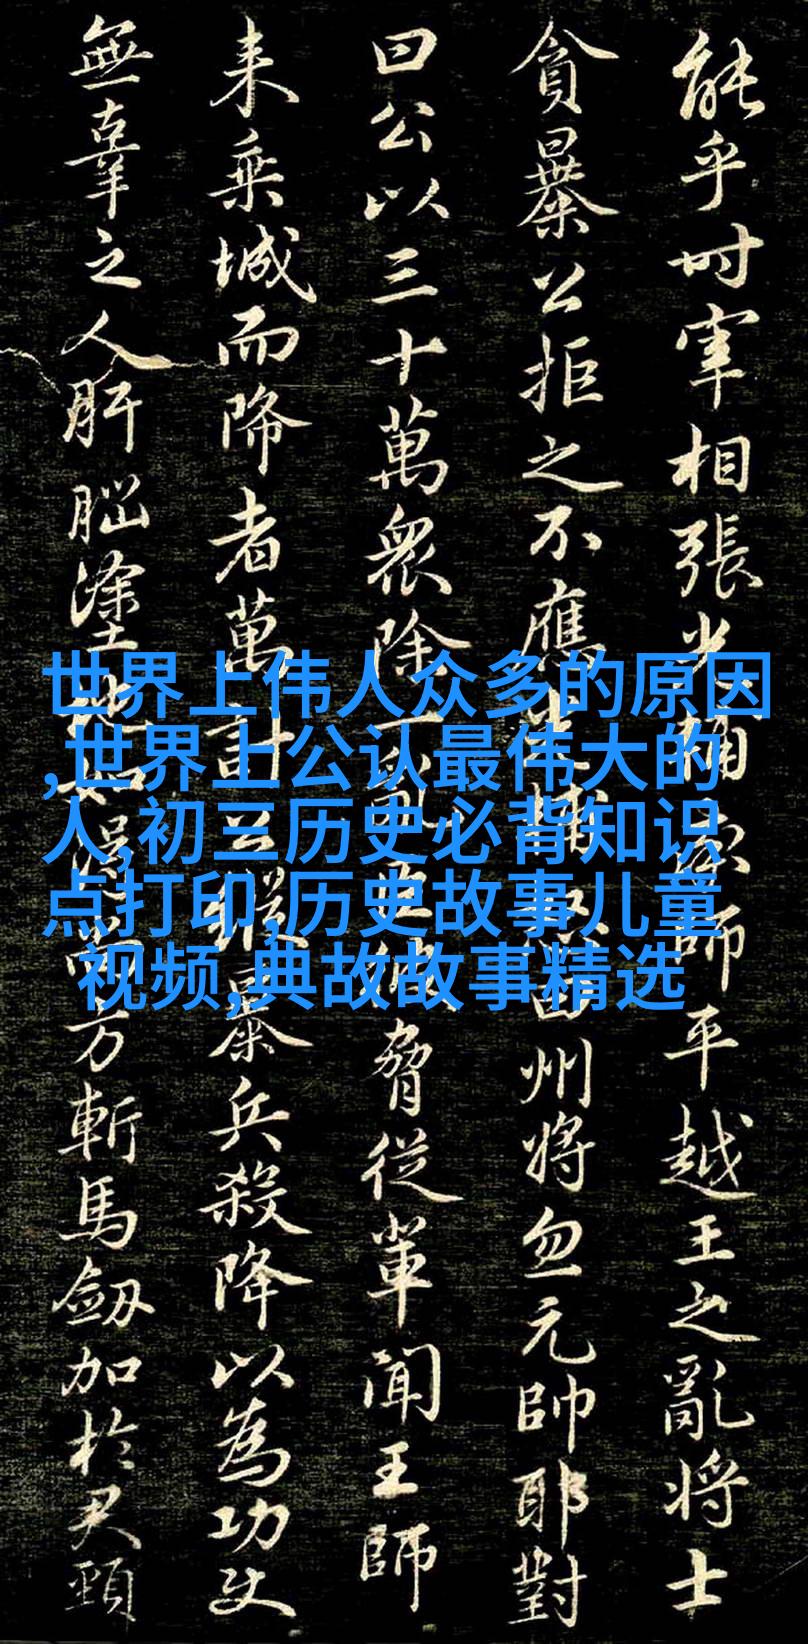 能乎时宰相張光師平越王之亂将士
貪暴公拒之不應州将忽元帥耶對
曰公以三十萬衆除一脅從輩聞王師
来乘城而降者萬計公縱暴兵殺降以為功使
無辜之人肝脳塗地方斬馬劒加扵君頸
世界上伟人众多的原因
,世界上公认最伟大的
人,初三历史必背知识
点打印,历史故事儿童
视频,典故故事精选